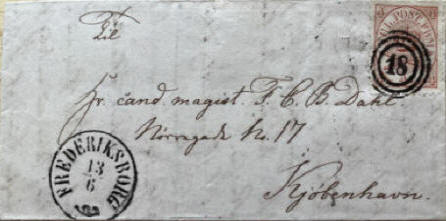 Til
Hr. cand. magist. F. C. B. Dahl
Nørregade No. 17
Kjöbenhavn.
18
FREDERIKSBORG
13
6